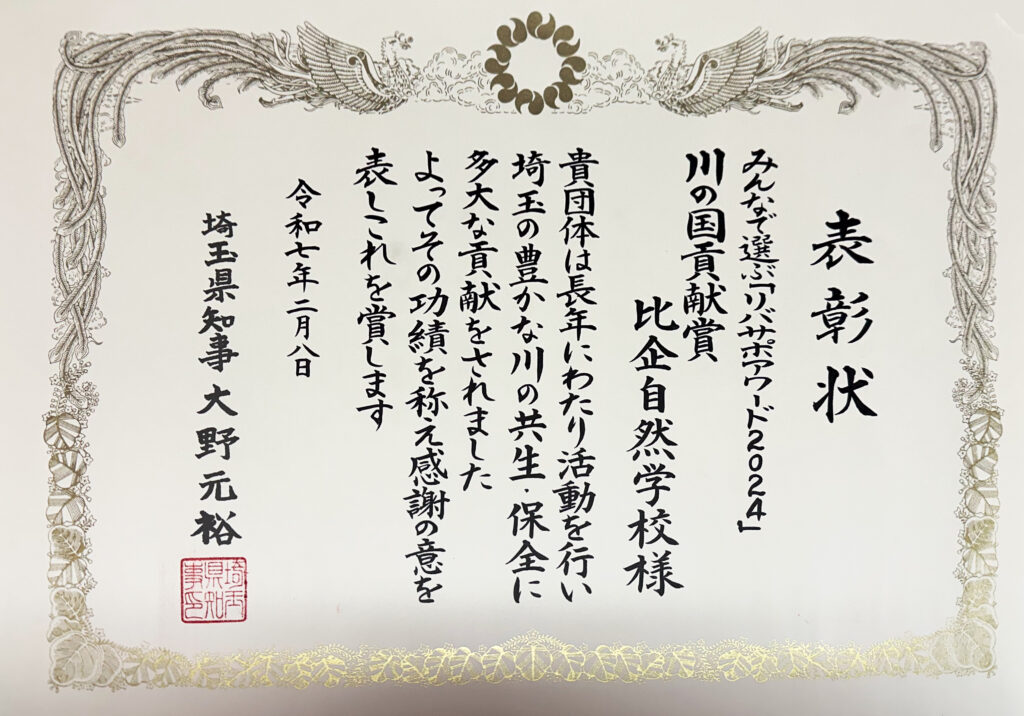 表彰状
みんなで選ぶ「リバサポアワード2024」
川の国貢献賞
比企自然学校様
貴団体は長年にわたり活動を行い
埼玉の豊かな川の共生・保全に
多大な貢献をされました
よってその功績を称え感謝の意を
表しこれを賞します
令和七年二月八日
埼玉県知事 大野元裕
埼玉
県知
事印